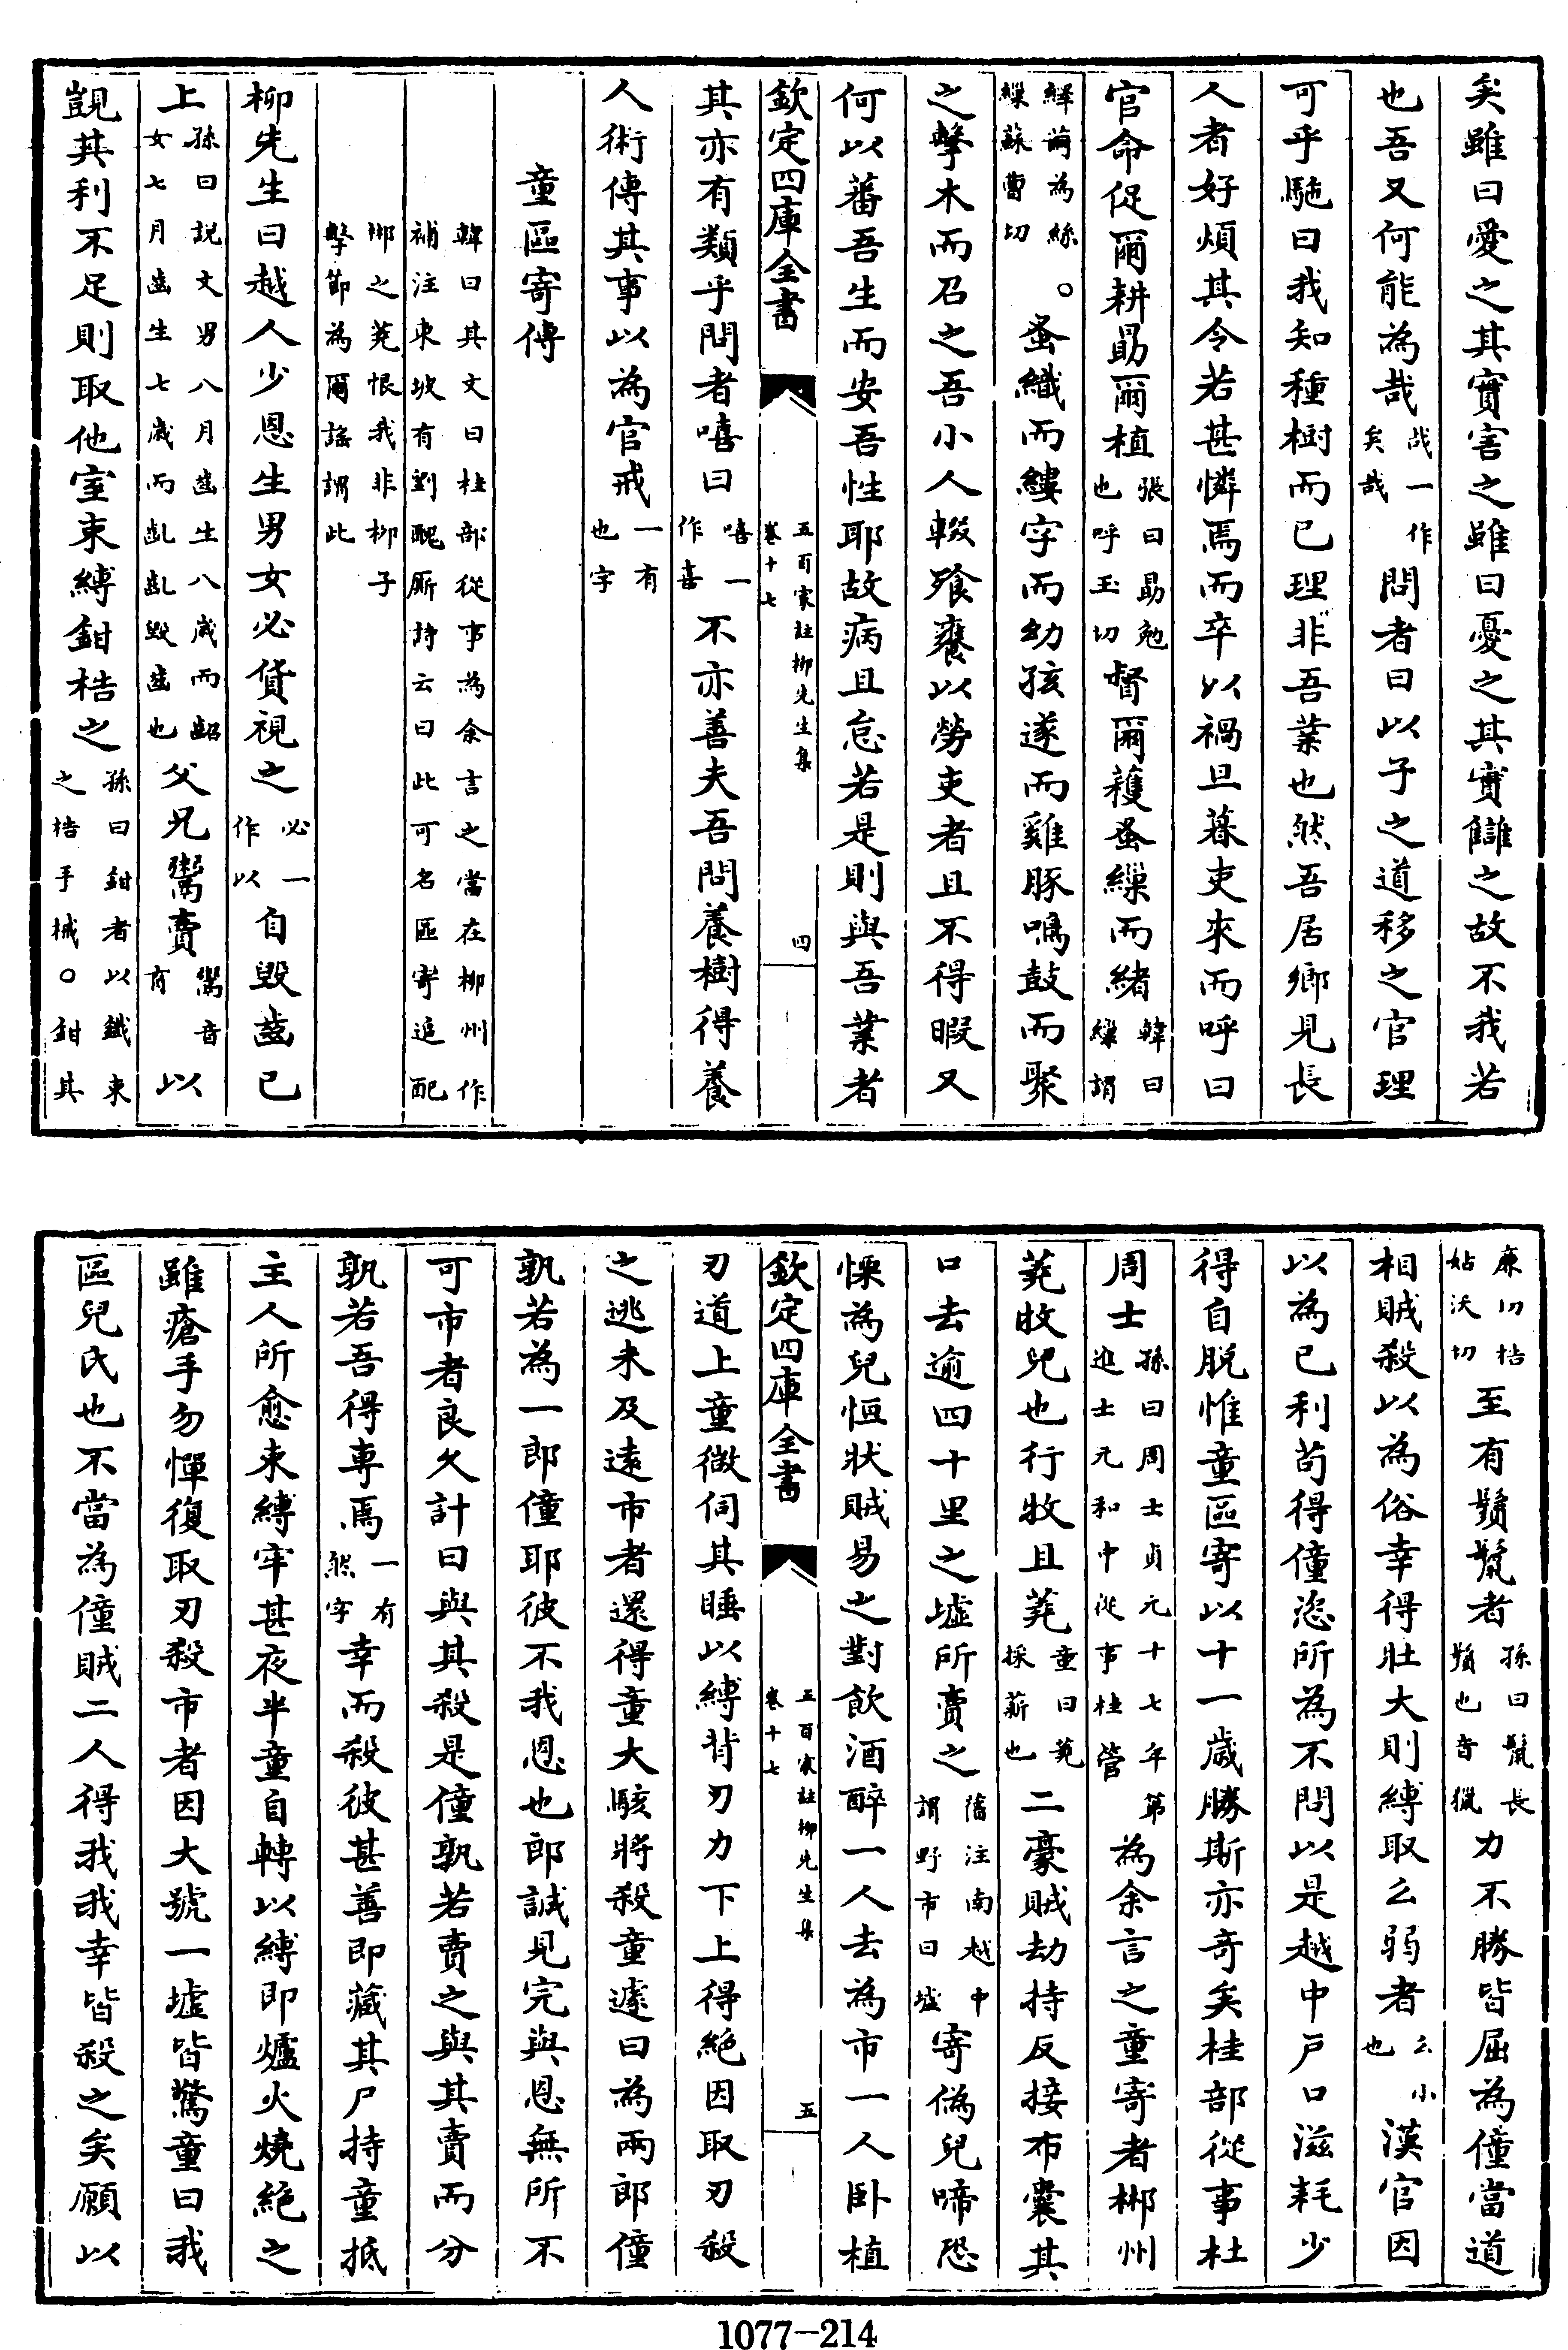 矣雖曰愛之其實害之雖曰憂之其實讎之故不我若
也吾又何能為哉哉一作矣哉問者曰以子之道移之官理
可乎駞曰我知種樹而已理非吾業也然吾居鄉見長
人者好煩其令若甚憐焉而卒以禍旦暮吏來而呼曰
官命促爾耕勗爾植張曰勗勉也呼玉切督爾穫蚤繰而緒韓曰繰謂
繹繭為絲繰蘇曹切。蚤織而縷字而幼孩遂而雞豚鳴鼓而聚
之擊木而召之吾小人輟飱饔以勞吏者且不得暇又
何以蕃吾生而安吾性耶故病且怠若是則與吾業者
欽定四庫全書 五百家註柳先生集卷十七 四
其亦有類乎問者嘻曰嘻一作喜不亦善夫吾問養樹得養
人術傳其事以為官戒一有也字
童區寄傳
韓曰其文曰桂部從事為余言之當在柳州作補注東坡有劉醜厮詩云曰此可名區寄追配
郴之蕘恨我非柳子擊節為爾謠謂此
柳先生曰越人少恩生男女必貨視之必一作以自毀齒已
上孫曰說文男八月齒生八歲而齠女七月齒生七歲而齔齔毀齒也父兄鬻賣鬻音育以
覬其利不足則取他室束縛鉗梏之孫曰鉗者以鐵束之梏手械○鉗其
廉切梏姑沃切至有鬚鬣者孫曰鬣長鬚也音獵力不勝皆屈為僮當道
相賊殺以為俗幸得壯大則縛取么弱者么小也漢官因
以為已利苟得僮恣所為不問以是越中戶口滋耗少
得自脫惟童區寄以十一歲勝斯亦奇矣桂部從事杜
周士孫曰周士貞元十七年第進士元和中從事桂管為余言之童寄者郴州
蕘牧兒也行牧且蕘童曰蕘採薪也二豪賊劫持反接布囊其
口去逾四十里之墟所賣之舊注南越中謂野市曰墟寄偽兒啼恐
慄為兒恒狀賊易之對飲酒醉一人去為市一人臥植
欽定四庫全書 五百家註柳先生集卷十七 五
刃道上童微伺其睡以縛背刃力下上得絕因取刃殺
之逃未及遠市者還得童大駭將殺童遽曰為兩郎僮
孰若為一郎僮耶彼不我恩也郎誠見完與恩無所不
可市者良久計曰與其殺是僮孰若賣之與其賣而分
孰若吾得專焉一有然字幸而殺彼甚善即藏其尸持童抵
主人所愈束縛牢甚夜半童自轉以縛即爐火燒絕之
雖瘡手勿憚復取刃殺市者因大號一墟皆驚童曰我
區兒氏也不當為僮賊二人得我我幸皆殺之矣願以
1077—214